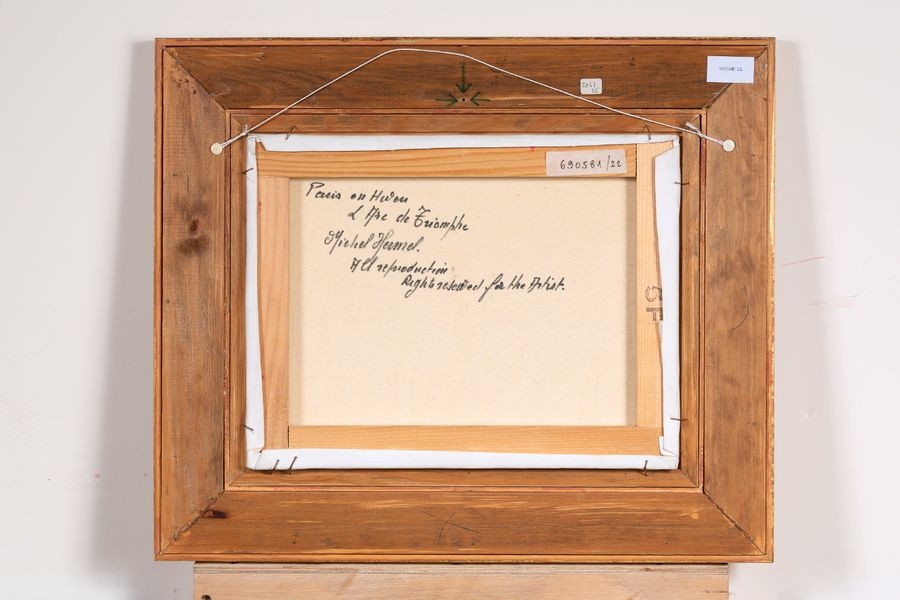 2022
25
690581/22
Paris en Hiver
L'Arc de Triomphe
Michel Hermel.
All reproduction
Rights reserved for the Artist.